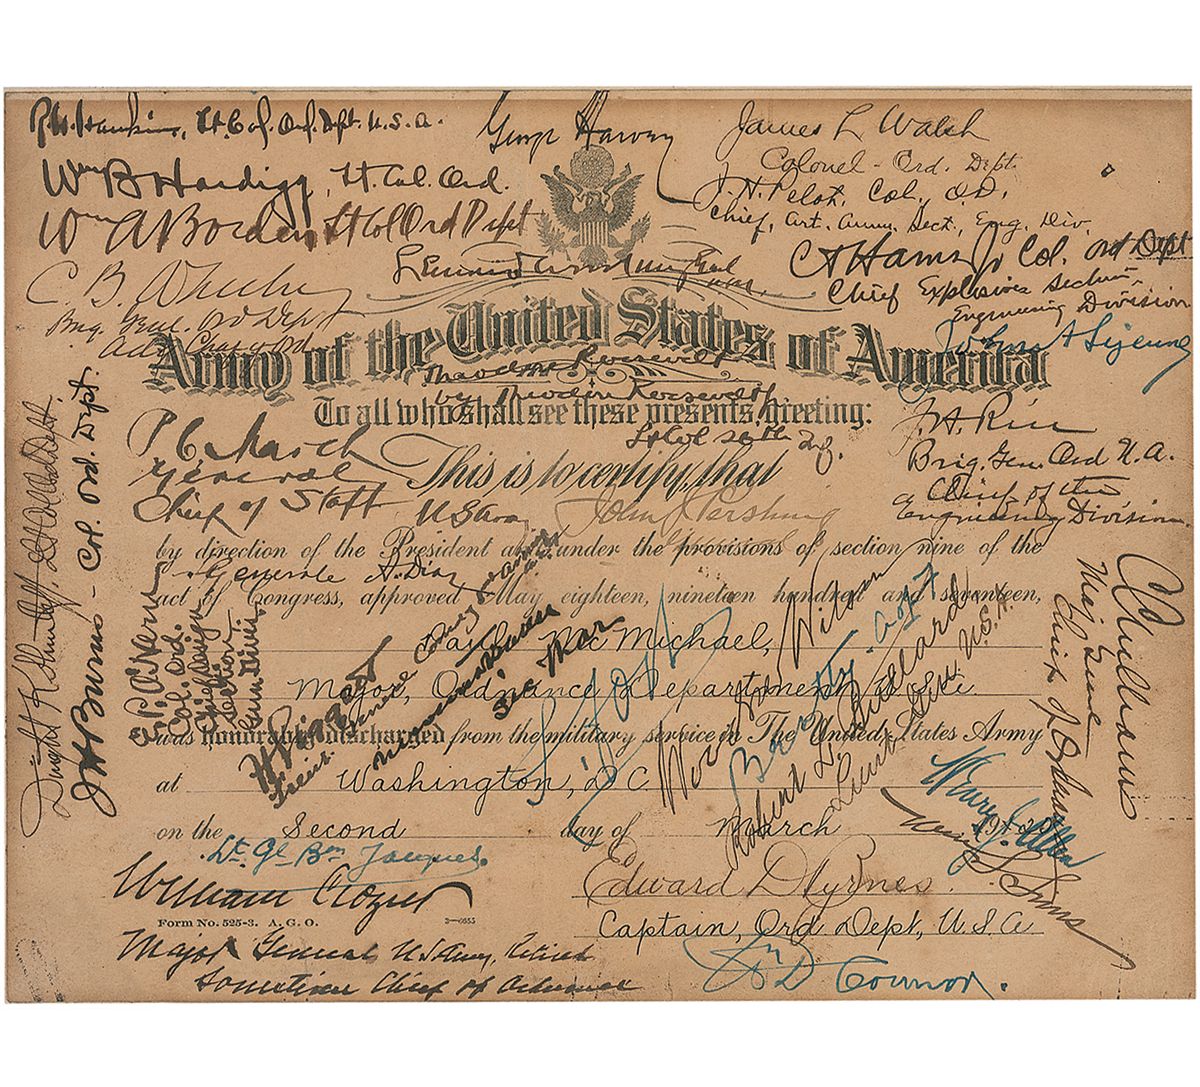 Lt. Col. Ord. Dept. U.S.A.
George Harvey
James L. Walsh
Colonel - Ord. Dept.
Wm B Hardigg, Lt. Col. Ord.
J. H. Pelot, Col. O.D.
Chief, Art. Ammn. Sect., Eng. Div.
Wm A Borden, Lt Col Ord Dept
Col. Ord Dept
Chief Explosives Section
Engineering Division
C. B. Wheeler
Brig. Genl. Ord Dept
Army of the United States of America
Theodore Roosevelt
by Theodore Roosevelt Jr
Lt Col 26th Inf.
To all who shall see these presents, greeting:
This is to certify, that
P C March
General
Chief of Staff
U S Army
J. H. Rice
Brig. Gen. Ord U.S.A.
Chief of the
Engineering Division.
John J Pershing
by direction of the President and under the provisions of section nine of the
Generale A. Diaz
act of Congress, approved May eighteen, nineteen hundred and seventeen,
Paul Mac Michael,
Major, Ordnance Department, U.S.
was honorably discharged from the military service in The United States Army
at Washington, D.C.
on the Second day of March 1920
J H Burns - Col. Ord. Dept.
Col. Ord.
Chief Design
Section
Gun Divn.
Newton D Baker
Sec War
Woodrow Wilson
Robert L. Bullard
Lieut. Gen U.S.A.
C C Williams
Maj Gen
Chief of Ordnance
Henry T. Allen
William S. Sims
Lt. Gl Bon Jacques.
William Crozier
Edward D Byrnes.
Form No. 525-3. A. G. O.
3—6655
Captain, Ord Dept, U.S.A
Major General U S Army, Retired
Sometime Chief of Ordnance
Connor.